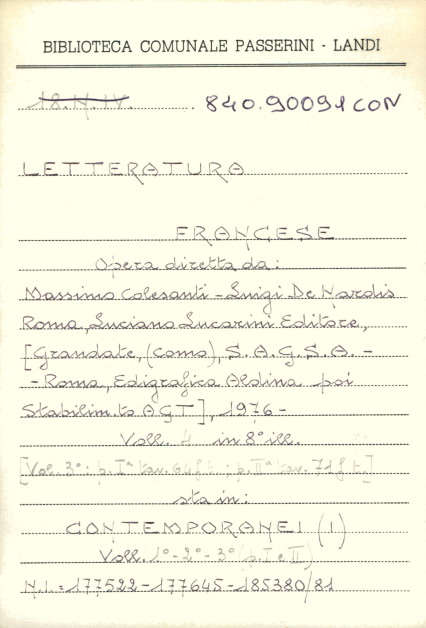 BIBLIOTECA COMUNALE PASSERINI - LANDI
18.H.IV. 840.90091 CON
LETTERATURA
FRANCESE
Opera diretta da:
Massimo Colesanti - Luigi De Nardis
Roma, Luciano Lucarini Editore,
[Grandate, (Como), S.A.G.S.A. -
- Roma, Edigrafica Aldina poi
Stabilim.to AGT], 1976 -
Voll. 4 in 8° ill.
[Vol. 3°: p. Iª tav. 64 f.t.; p. IIª tav. 71 f.t.]
sta in:
CONTEMPORANEI (I)
Voll. 1°-2°-3° (p. I e II)
N.I. = 177522-177645-185380/81